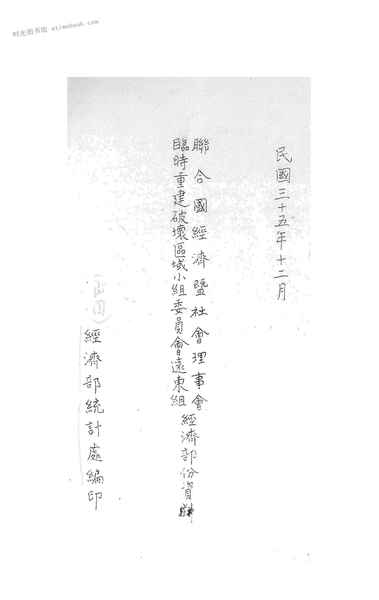 时光图书馆 stimebook.com
民國三十五年十二月
聯合國經濟暨社會理事會
臨時重建破壞區域小組委員會遠東組
經濟部份資料
經濟部統計處編印